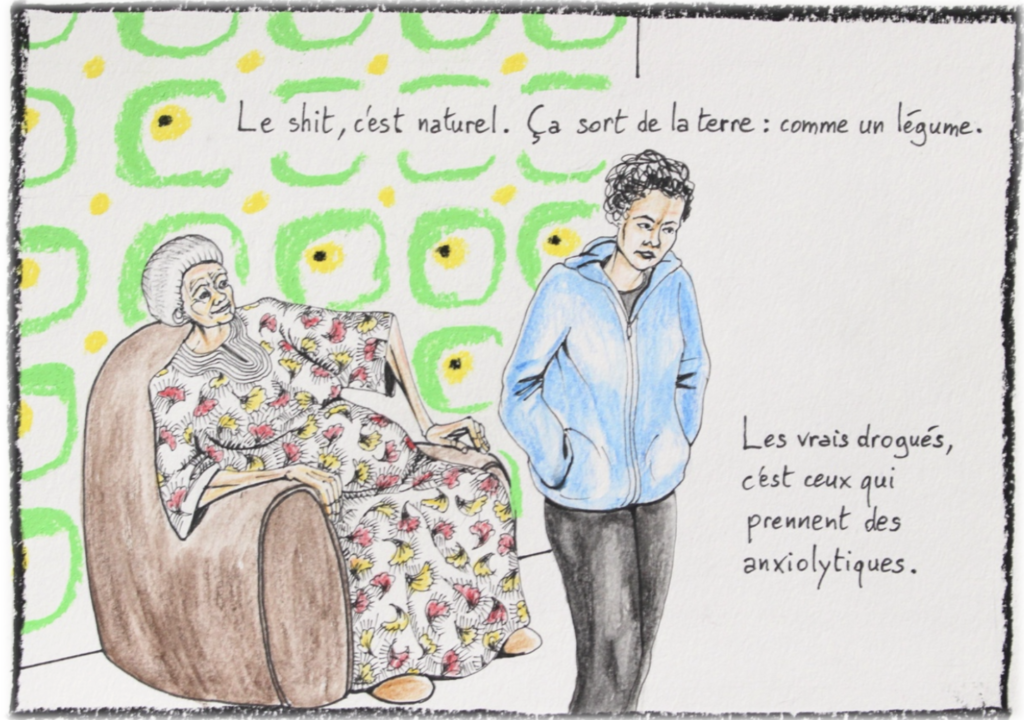 Le shit, c'est naturel. Ça sort de la terre : comme un légume.
Les vrais drogués,
c'est ceux qui
prennent des
anxiolytiques.